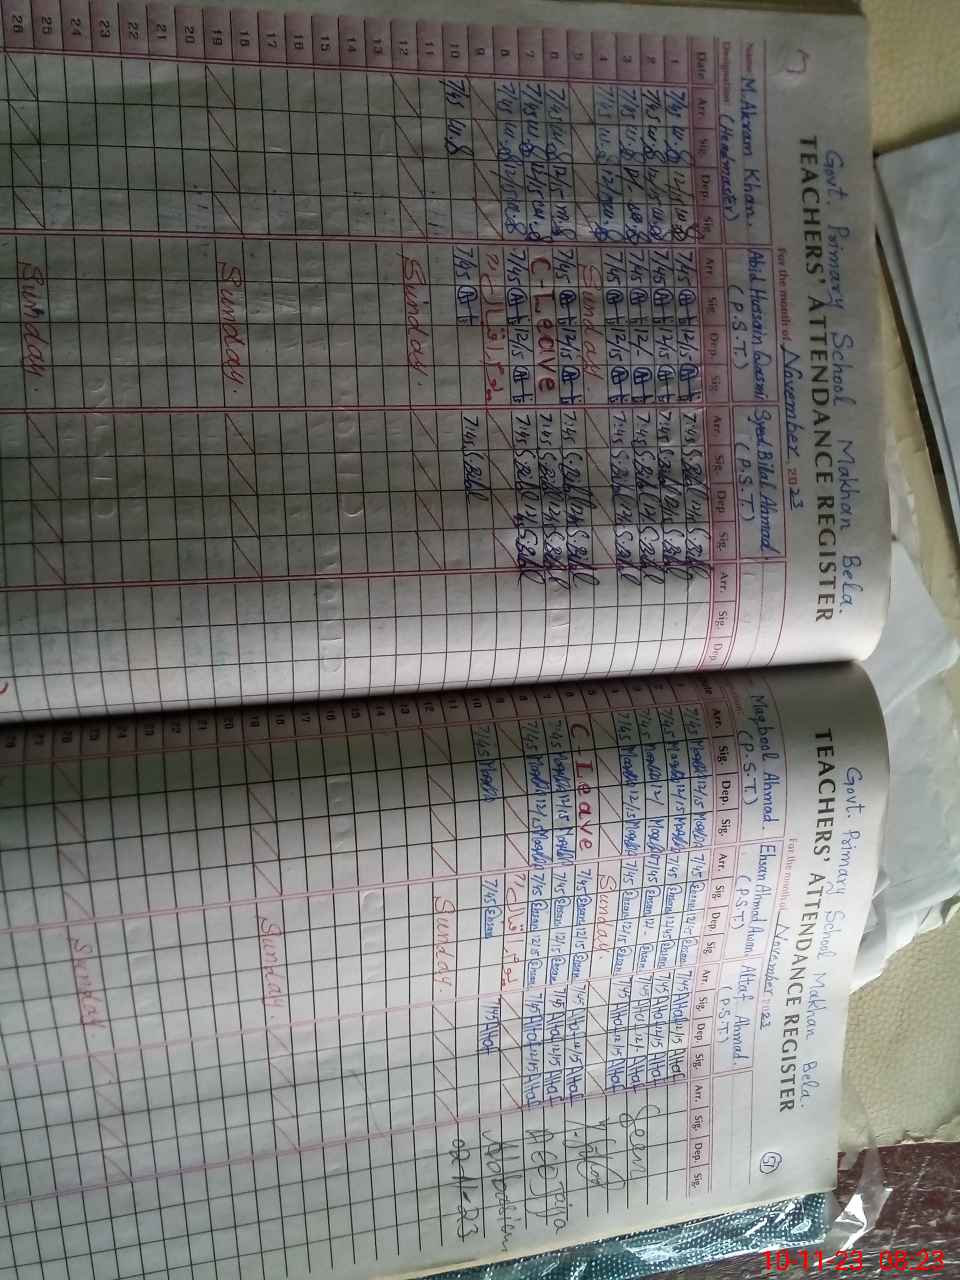 Govt. Primary School Makhan Bela.
TEACHERS' ATTENDANCE REGISTER
For the month of November 2023
Name M. Akram Khan. Abid Hussain Qasmi Syed Bilal Ahmad
Designation (Headmaster) (P.S.T.) (P.S.T.)
Date Arr. Sig. Dep. Sig. Arr. Sig. Dep. Sig. Arr. Sig. Dep. Sig. Arr. Sig. Dep.
1 7/45 12/15 7/45 12/15 7:45 S.Bilal 12/15 S.Bilal
2 7/45 12/15 7/45 12/15 7:45 S.Bilal 12/15 S.Bilal
3 7/45 12/- 7/45 12/- 7:45 S.Bilal 12/- S.Bilal
4 7/45 12/15 7/45 12/15 7:45 S.Bilal 12/15 S.Bilal
5 Sunday.
6 7/45 12/15 7/45 12/15 7:45 S.Bilal 12/15 S.Bilal
7 7/45 12/15 C-Leave 7:45 S.Bilal 12/15 S.Bilal
8 7/45 12/15 7/45 12/15 7:45 S.Bilal 12/15 S.Bilal
9
10 7/45 7/45 7:45 S.Bilal
11
12 Sunday.
13
14
15
16
17
18
19 Sunday.
20
21
22
23
24
25
26 Sunday.
Govt. Primary School Makhan Bela.
TEACHERS' ATTENDANCE REGISTER
5
For the month of November 2023
Maqbool Ahmad. Ehsan Ahmad Awan. Altaf Ahmad.
(P.S.T.) (P.S.T.) (P.S.T.)
Date Arr. Sig. Dep. Sig. Arr. Sig. Dep. Sig. Arr. Sig. Dep. Sig. Arr. Sig. Dep. Sig.
1 7/45 12/15 7/45 Ehsan 12/15 Ehsan 7/45 Altaf 12/15 Altaf
2 7/45 12/15 7/45 Ehsan 12/15 Ehsan 7/45 Altaf 12/15 Altaf
3 7/45 12/- 7/45 Ehsan 12/- Ehsan 7/45 Altaf 12/- Altaf
4 7/45 12/15 7/45 Ehsan 12/15 Ehsan 7/45 Altaf 12/15 Altaf
5 Sunday.
6 C-Leave 7/45 Ehsan 12/15 Ehsan 7/45 Altaf 12/15 Altaf
7 7/45 12/15 7/45 Ehsan 12/15 Ehsan 7/45 Altaf 12/15 Altaf
8 7/45 12/15 7/45 Ehsan 12/15 Ehsan 7/45 Altaf 12/15 Altaf
9
10 7/45 7/45 Ehsan 7/45 Altaf
11
12 Sunday.
13
14
15
16
17
18
19 Sunday.
20
21
22
23
24
25
26 Sunday
27
28
Seen
AEO
10-11-23 08:23